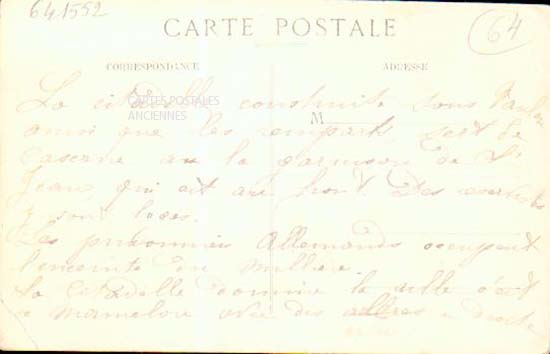 641552
CARTE POSTALE
64
CORRESPONDANCE
ADRESSE
CARTES POSTALES
ANCIENNES
M
La citadelle construite sous Vauban
ainsi que les remparts, sert de
caserne à la garnison de St
Jean, qui est au front. Des
y sont logés.
Les prisonniers Allemands occupent
l'enceinte du milieu.
La Citadelle domine la ville c'est
mamelon avec des arbres à droite